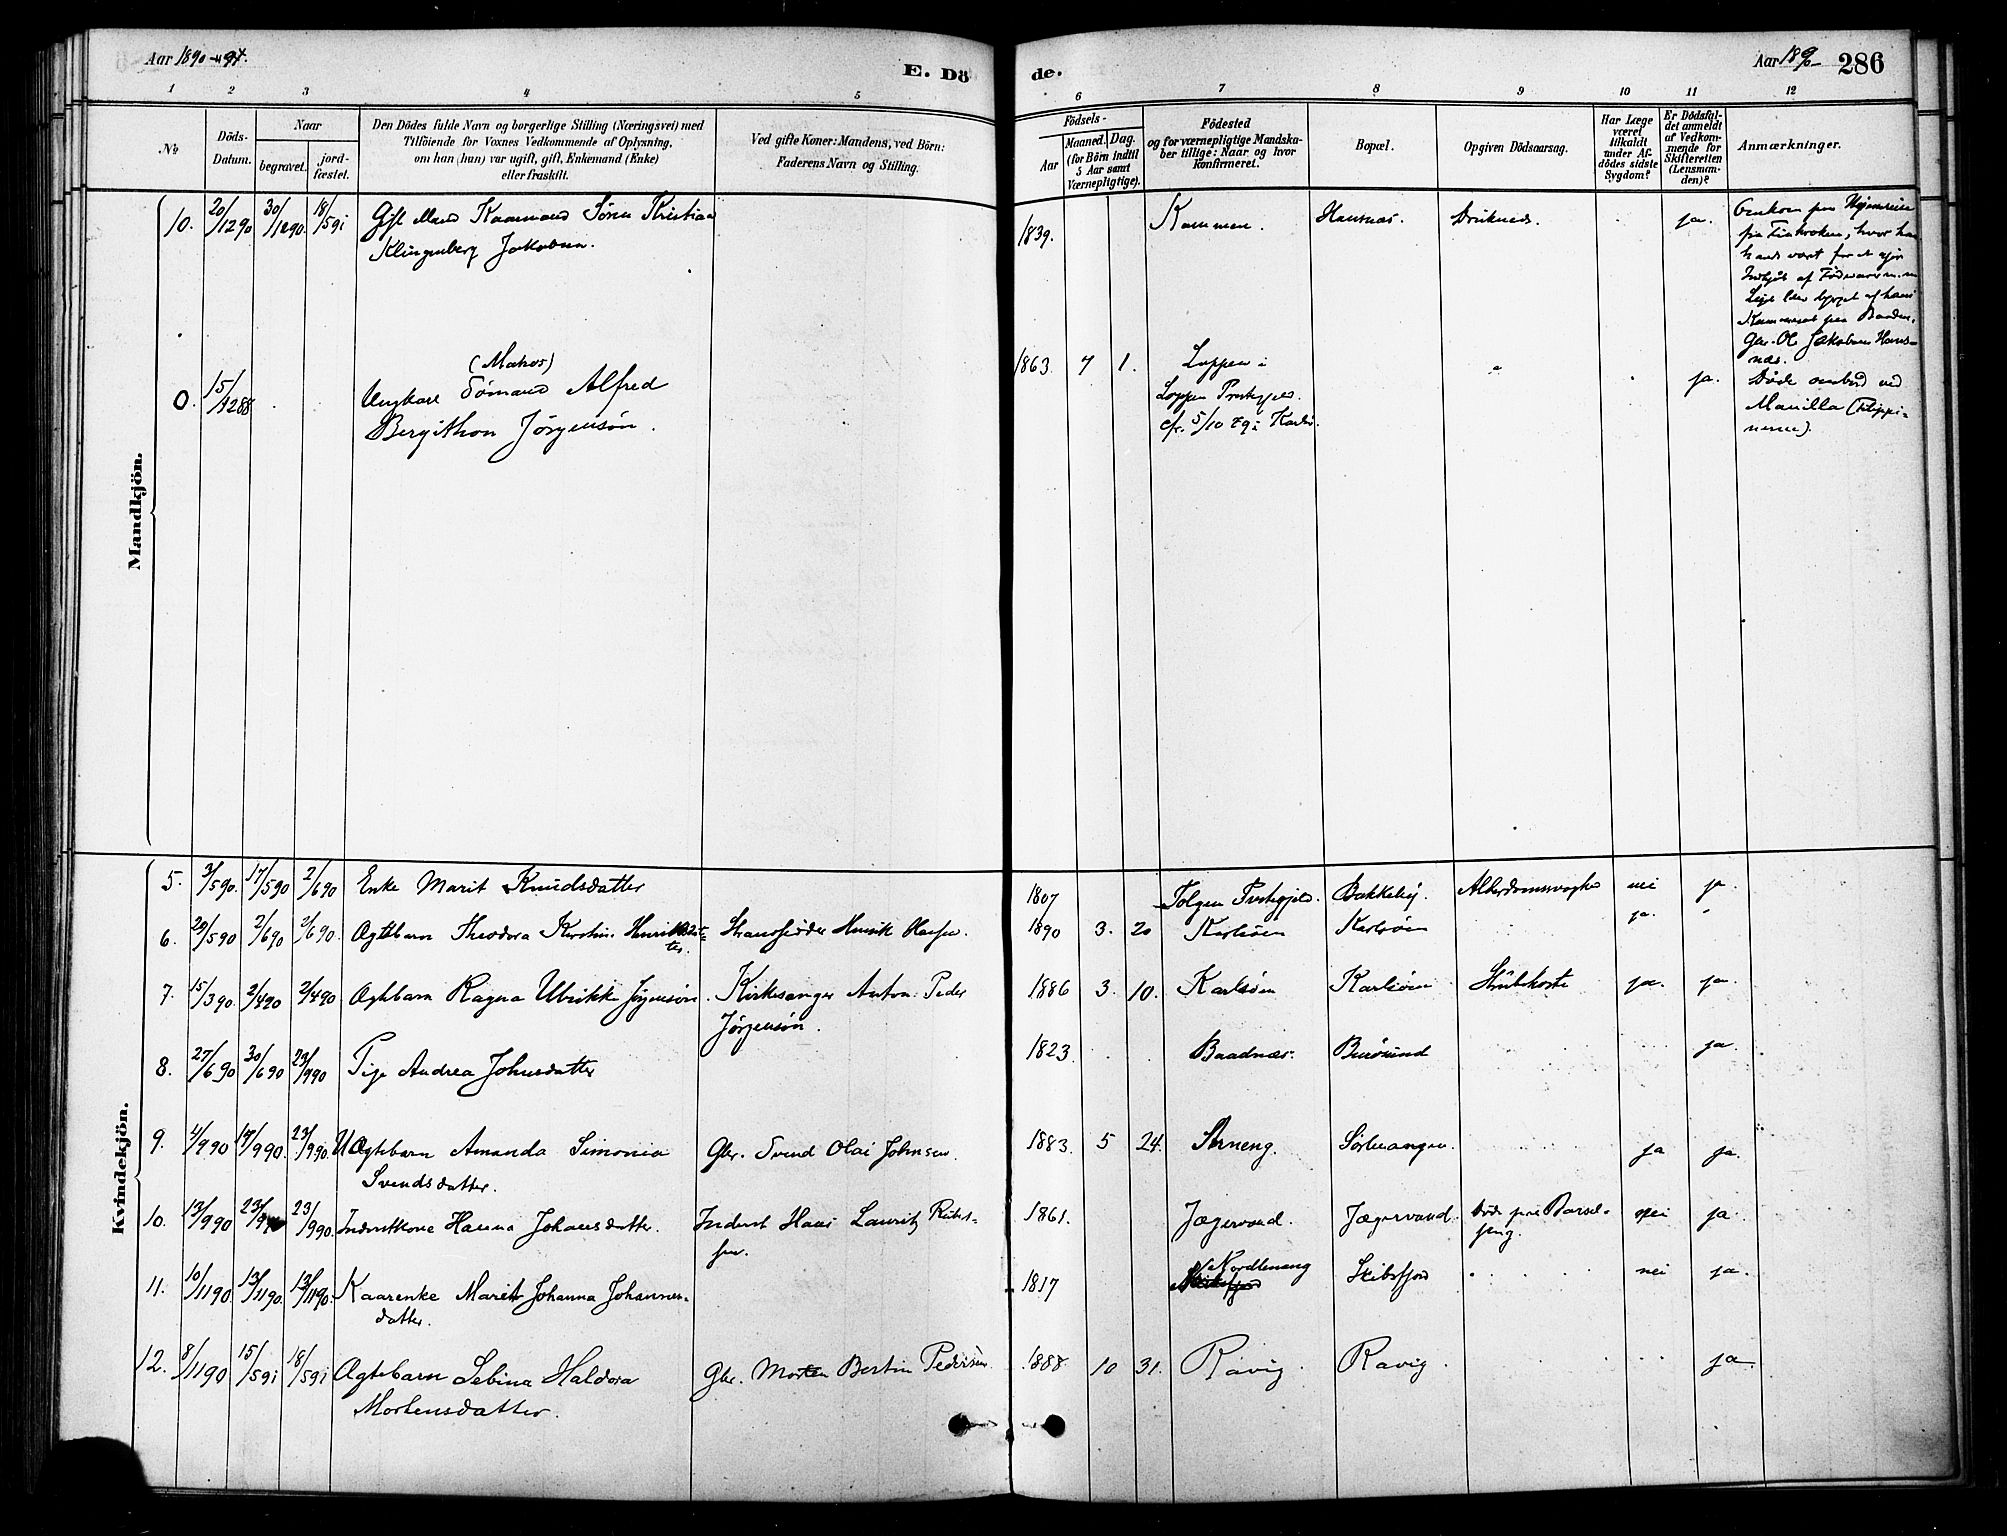 Aar 1890-
E. Dö
de.
Aar 1890-
286
1 2 3 4 5
6 7 8 9 10 11 12
№
Döds-
Datum.
Naar
begravet.
jord-
fæstet.
Den Dödes fulde Navn og borgerlige Stilling (Næringsvei) med
Tilföiende for Voxnes Vedkommende af Oplysning,
om han (hun) var ugift, gift, Enkemand (Enke)
eller fraskilt.
Ved gifte Koner: Mandens, ved Börn:
Faderens Navn og Stilling.
Födsels-
Aar
Maaned. Dag.
(for Börn indtil
5 Aar samt
Værnepligtige).
Födested
og for værnepligtige Mandska-
ber tillige: Naar og hvor
konfirmeret.
Bopæl.
Opgiven Dödsaarsag.
Har Læge
været
tilkaldt
under Af-
dödes sidste
Sygdom?
Er Dödsfal-
det anmeldt
af Vedkom-
mende for
Skifteretten
(Lensman-
den)?
Anmærkninger.
Mandkjön.
10. 20/1290 30/1290 18/591 Gift Mand Kaarmand Sören Kristian
Klingenberg Jakobsen.
1839. Kammen. Hansnæs. Druknede. ja.
Omkom paa Hjemreise
fra Finkroken, hvor han
havde vært for at gjøre
Indkjöb af Födevarer
af hans
Kammerat paa Baaden,
Gbr. Ol Jakobsen Hans-
næs.
0. 15/1288 (Matros)
Ungkarl Sömand Alfred
Bergithon Jörgensön.
1863. 7 1. Loppen i
Loppen Prestegjeld.
cfr. 5/10 79 i Karlsö.
ja. Döde ombord ved
Manilla (Filippi-
nerne).
Kvindekjön.
5. 3/590. 17/590 2/690 Enke Marit Knudsdatter
1807 Tolgen Prestegjeld. Bakkeby. Alderdomssvaghe nei ja.
6. 29/590 2/690 2/690. Ægtebarn Theodora Kirstine Henrikdat-
ter. Strandsidder Henrik Hansen.
1890 3. 20 Karlsöen Karlsöen ja. "
7. 15/390. 2/490 2/490 Ægtebarn Ragna Ulrikke Jörgensön. Kirkesanger Anton Peder
Jörgensön.
1886 3. 10. Karlsöen Karlsöen Strubehoste ja. ja.
8. 27/690 30/690 23/990 Pige Andrea Johnsdatter
1823. Baadnæs. Burösund ja.
9. 4/990 19/990. 23/990. Uægtebarn Amanda Simonia
Svendsdatter. Gbr. Svend Olai Johnsen.
1883. 5 24. Årneng. Sörlenangen. ja ja.
10. 13/990 23/990 23/990. Inderstkone Hanna Johansdatter. Inderst Hans Lauritz
sen.
1861. Jægervand. Jægervand. Döde paa Barsel-
seng. nei ja.
11. 10/1190 13/1190. 13/1190. Kaarenke Marit Johanna Johannes-
datter.
1817 Nordlenang Skibsfjord nei ja.
12. 8/1190 15/591 18/591 Ægtebarn Sebina Haldora
Mortensdatter. Gbr. Morten Bertin Pedersen.
1888. 10 31. Ravig. Ravig. ja.